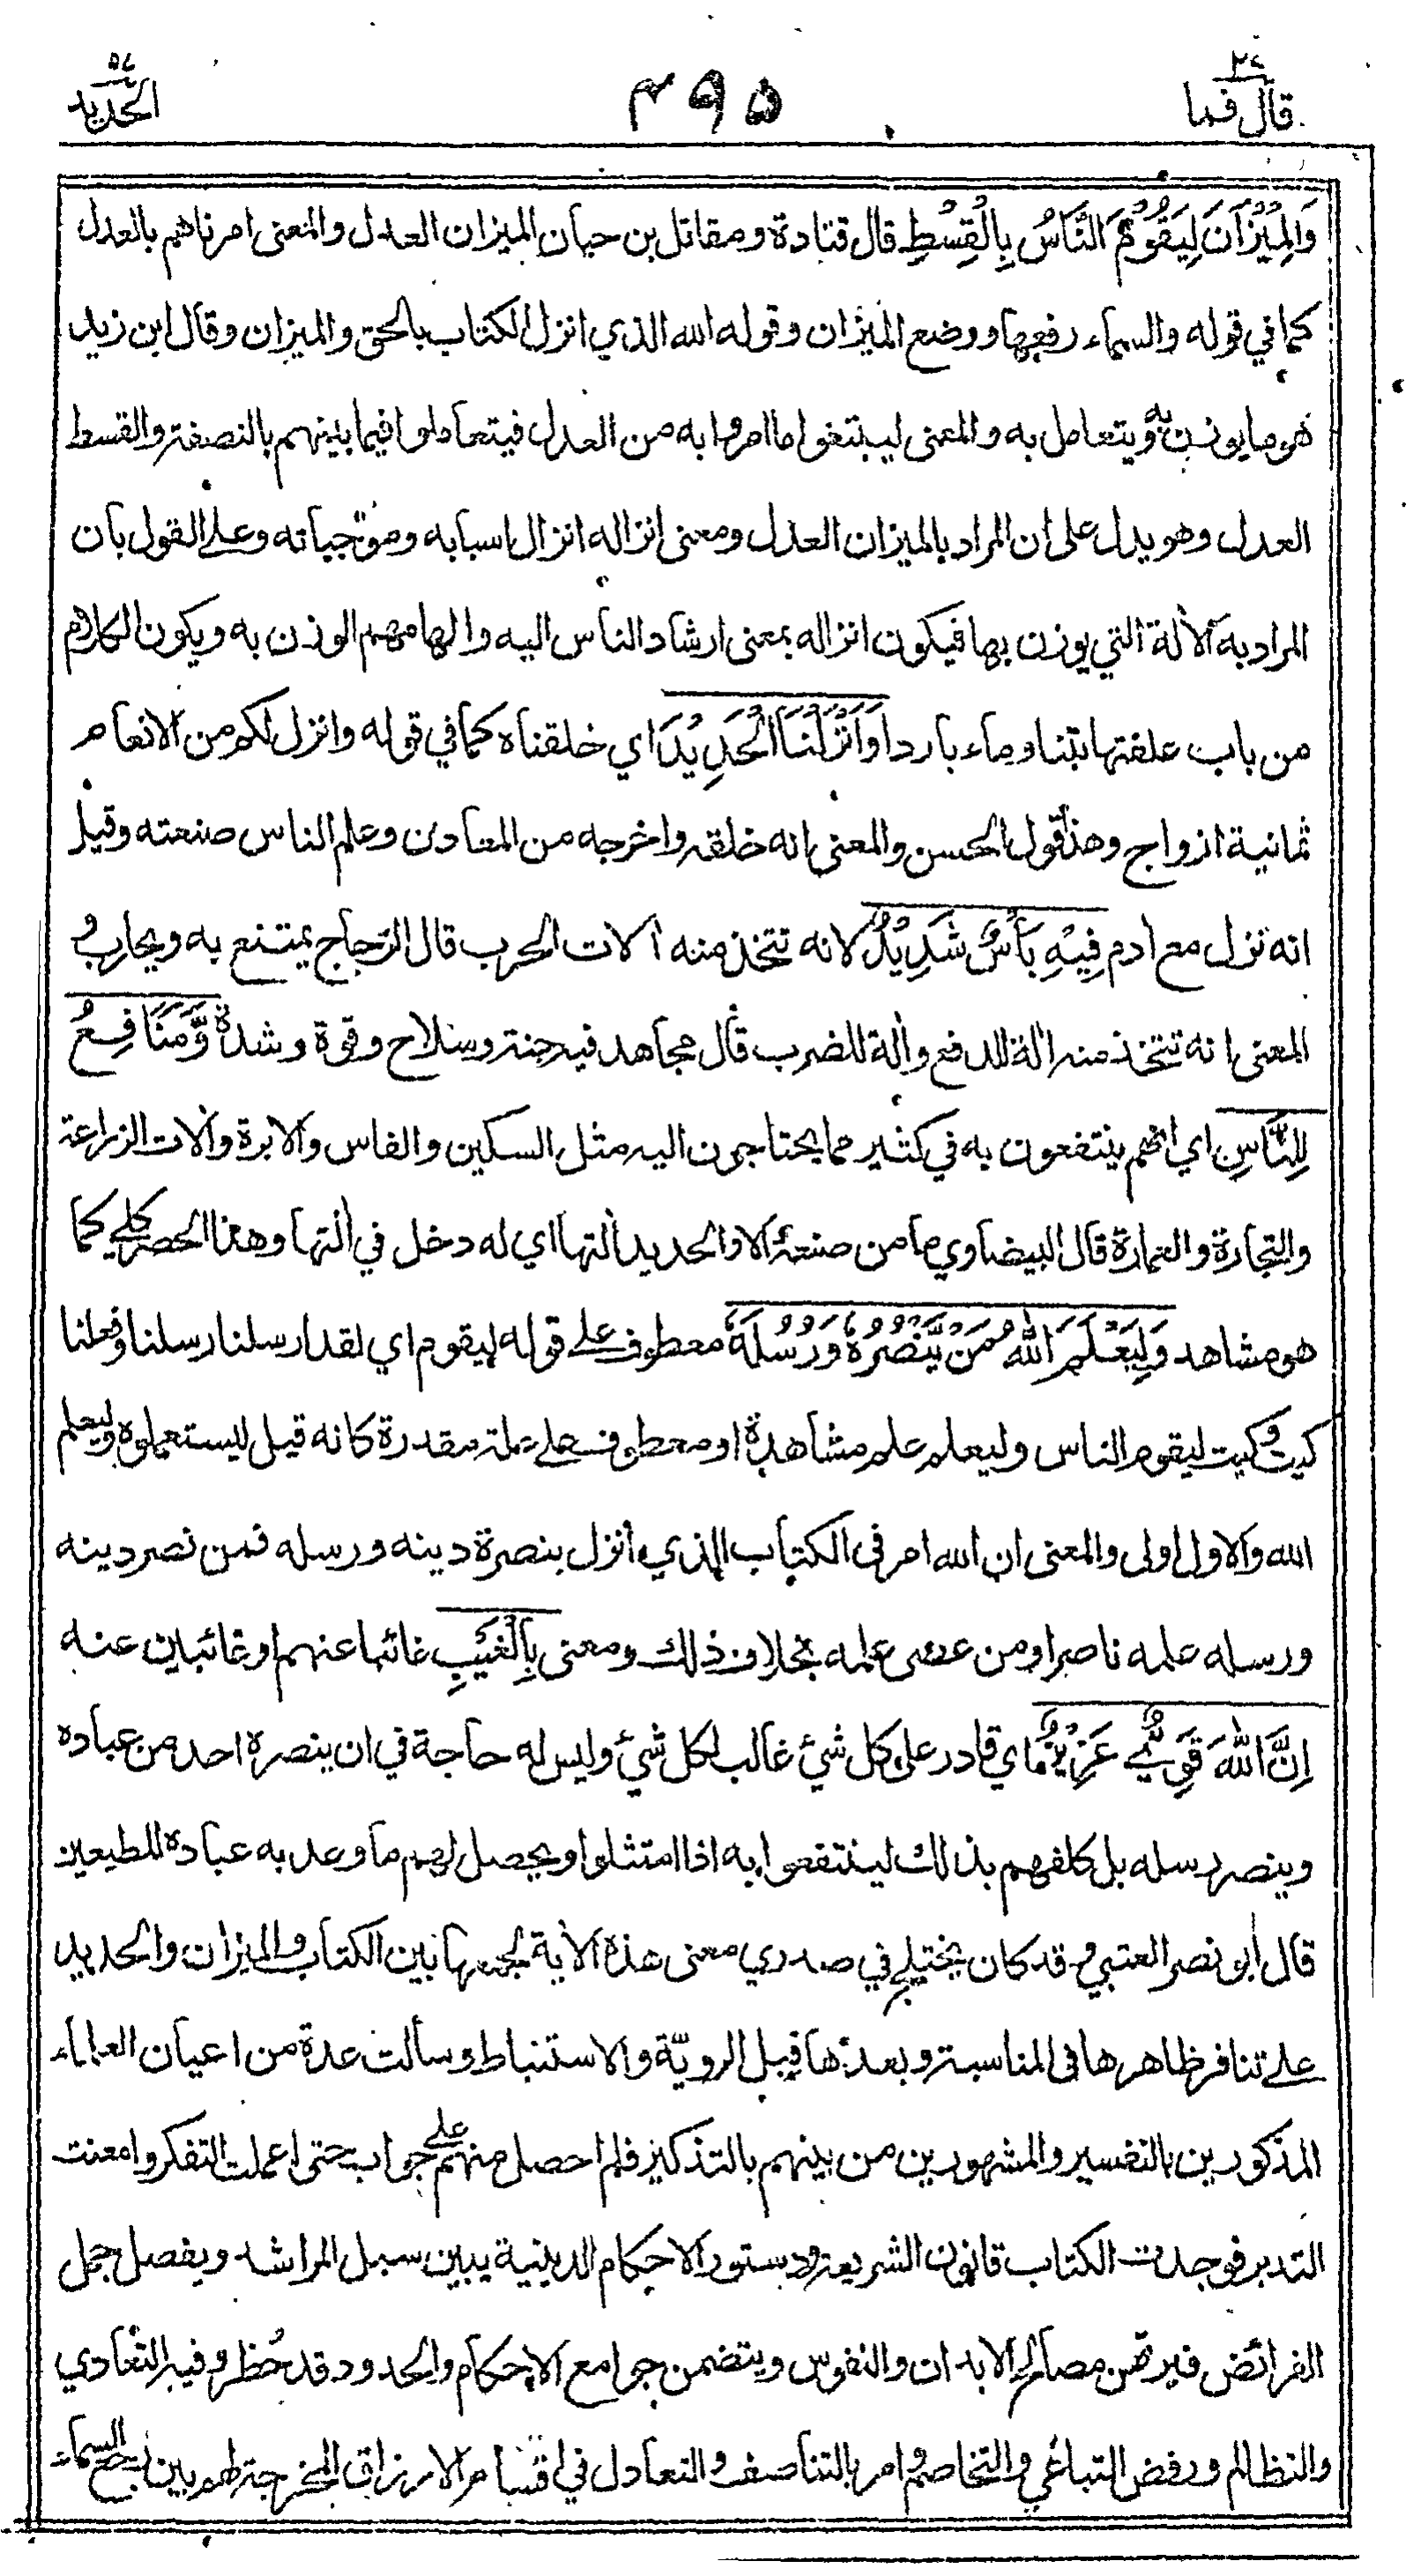 قال فما ٢٧
٤٩٥
الحديد ٥٧
وَالْمِيْزَانَ لِيَقُوْمَ النَّاسُ بِالْقِسْطِ قال قتادة ومقاتل بن حيان الميزان العدل والمعنى امرناهم بالعدل
كما في قوله والسماء رفعها ووضع الميزان وقوله الله الذي انزل الكتاب بالحق والميزان وقال ابن زيد
هو ما يوزن به ويتعامل به والمعنى ليبتغوا ما امروا به من العدل فيتعاملوا فيما بينهم بالنصفة والقسط
العدل وهو يدل على ان المراد بالميزان العدل ومعنى انزاله انزال اسبابه وموجباته وعلى القول بان
المراد به الألة التي يوزن بها فيكون انزاله بمعنى ارشاد الناس اليه والهامهم الوزن به ويكون الكلام
من باب علفتها تبنا وماء باردا وَاَنْزَلْنَا الْحَدِيْدَ اي خلقناه كما في قوله وانزل لكم من الانعام
ثمانية ازواج وهذا قول الحسن والمعنى انه خلقه واخرجه من المعادن وعلم الناس صنعته وقيل
انه نزل مع ادم فِيْهِ بَأْسٌ شَدِيْدٌ لانه تتخذ منه ألات الحرب قال الزجاج يمتنع به ويحارب و
المعنى انه تتخذ منه ألة للدفع وألة للضرب قال مجاهد فيه جنة وسلاح وقوة وشدة وَّمَنَافِعُ
لِلنَّاسِ اي انهم ينتفعون به في كثير مما يحتاجون اليه مثل السكين والفاس والابرة وألات الزراعة
والتجارة والعمارة قال البيضاوي ما من صنعة الا والحديد ألتها اي له دخل في ألتها وهذا الحصر كلي كما
هو مشاهد وَلِيَعْلَمَ اللّٰهُ مَنْ يَّنْصُرُهٗ وَرُسُلَهٗ معطوف على قوله ليقوم اي لقد ارسلنا رسلنا وفعلنا
كيت وكيت ليقوم الناس وليعلم علم مشاهدة او معطوف على علة مقدرة كانه قيل ليستعملوه وليعلم
الله والاول اولى والمعنى ان الله امر في الكتاب الذي أنزل بنصرة دينه ورسله فمن نصر دينه
ورسله علمه ناصرا ومن عصى علمه بخلاف ذلك ومعنى بِالْغَيْبِ غائبا عنهم او غائبين عنه
اِنَّ اللّٰهَ قَوِيٌّ عَزِيْزٌ اي قادر على كل شئ غالب لكل شئ وليس له حاجة في ان ينصره احد من عباده
وينصر رسله بل كلفهم بذلك لينتفعوا به اذا امتثلوا ويحصل لهم ما وعد به عباده المطيعين
قال أبو نصر العتبي وقد كان يختلج في صدري معنى هذه الأية لجمعها بين الكتاب والميزان والحديد
على تنافر ظاهرها في المناسبة وبعدها قبل الرويّة والاستنباط وسألت عدة من اعيان العلماء
المذكورين بالتفسير والمشهورين من بينهم بالتذكير فلم احصل منهم على جواب حتى اعملت التفكر وامعنت
التدبر فوجدت الكتاب قانون الشريعة ودستور الاحكام الدينية يبين سبل المراشد ويفصل جمل
الفرائض مصالح الابدان والنفوس ويتضمن جوامع الاحكام والحدود قد حُظر وفيه التعادي
والتظالم ورفض التباغي والتخاصم وامر بالتناصف والتعادل في اقسام الارزاق المخرجة لهم بين رجع السماء